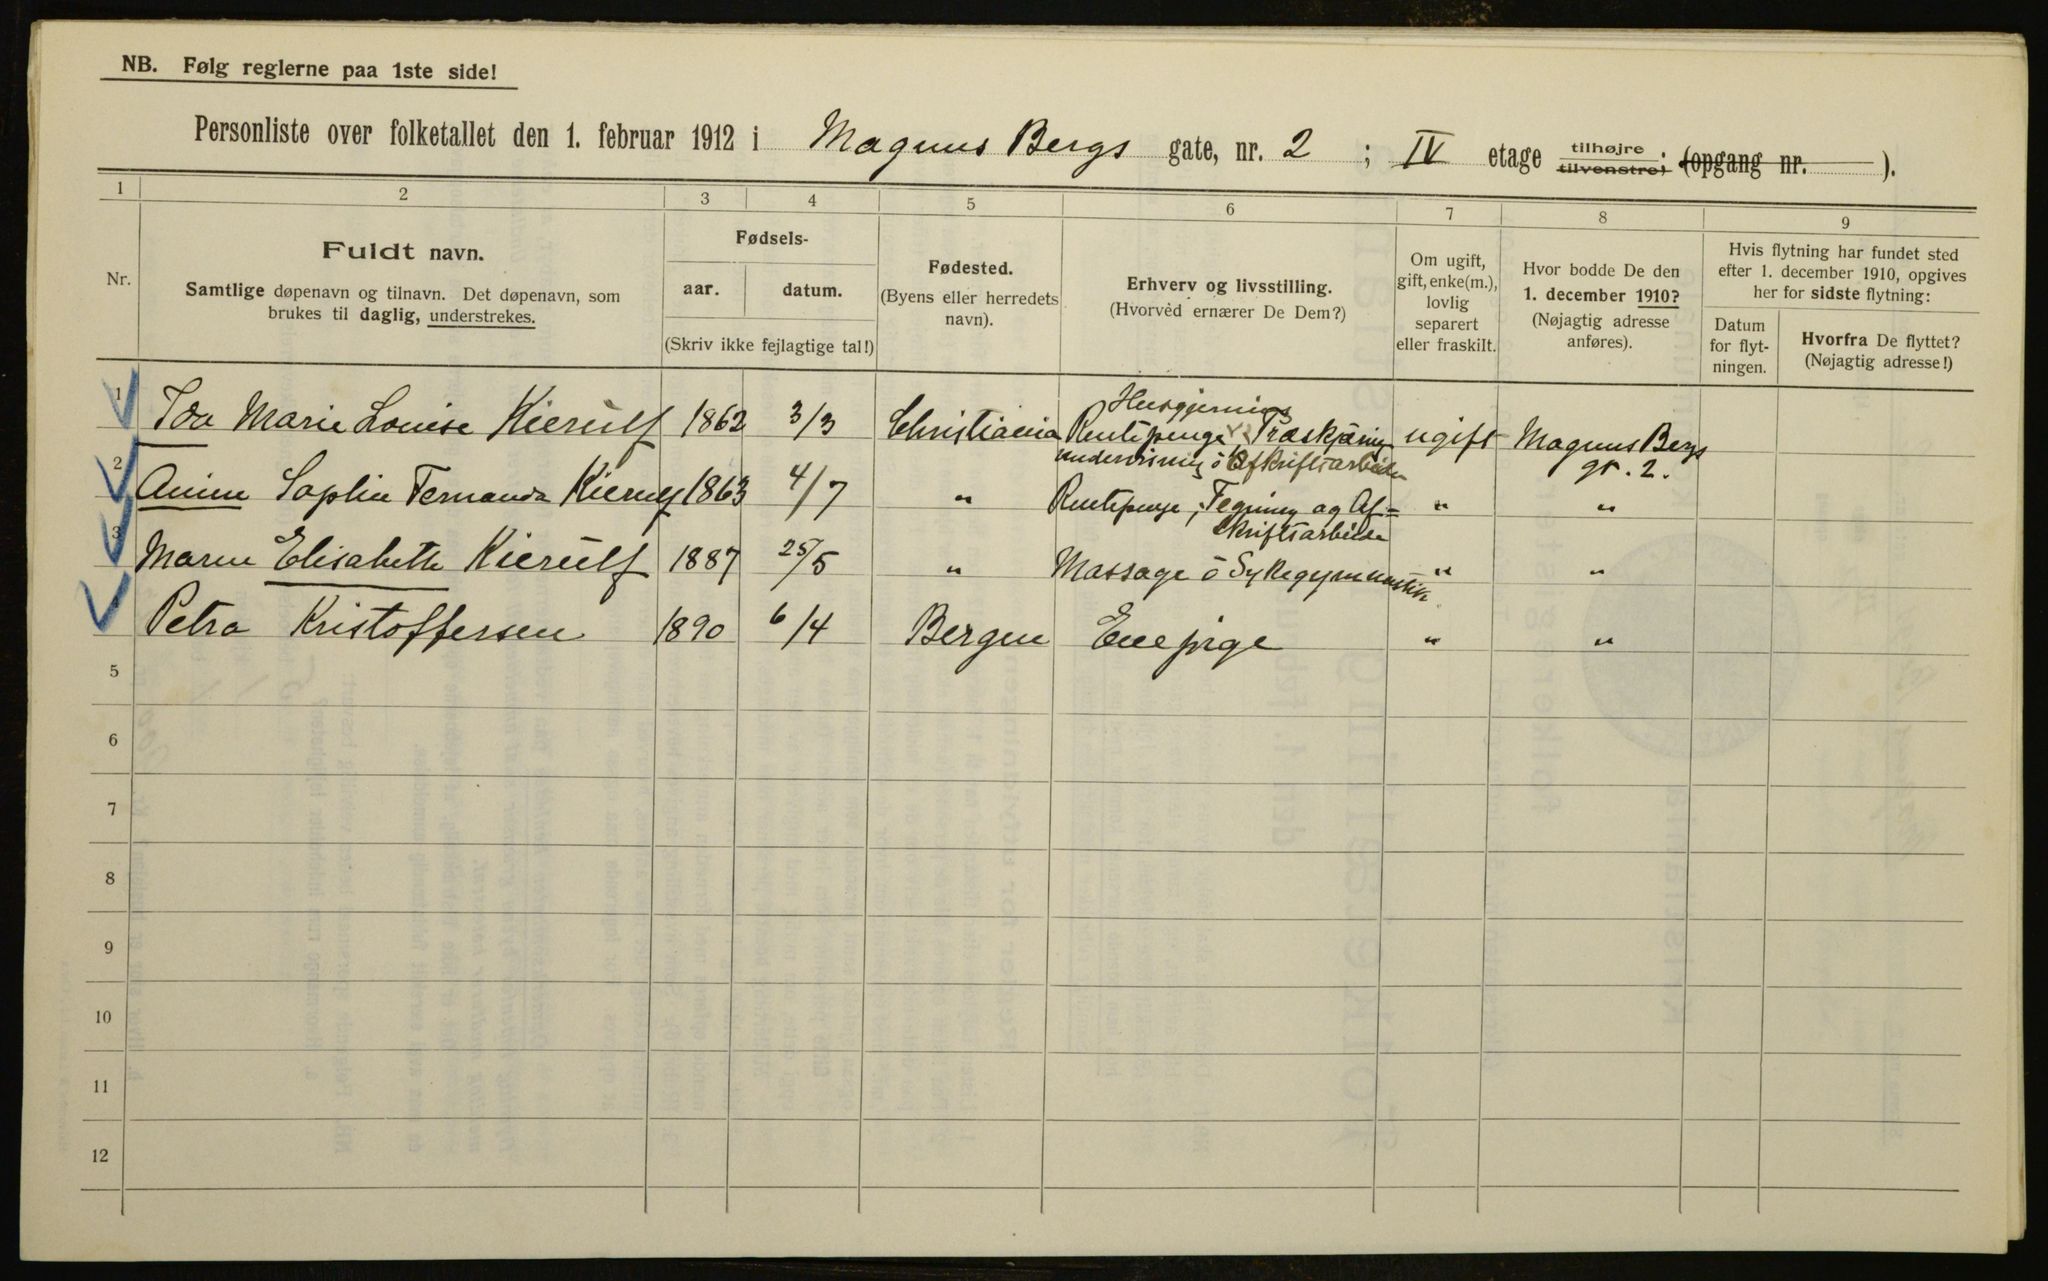 NB. Følg reglerne paa 1ste side!
Personliste over folketallet den 1. februar 1912 i Magnus Bergs gate, nr. 2 ; IV etage tilhøjre tilvenstre; (opgang nr. ).
1 2 3 4 5 6 7 8 9
Nr.
Fuldt navn.
Samtlige døpenavn og tilnavn. Det døpenavn, som
brukes til daglig, understrekes.
Fødsels-
aar. datum.
(Skriv ikke fejlagtige tal!)
Fødested.
(Byens eller herredets
navn).
Erhverv og livsstilling.
(Hvorvèd ernærer De Dem?)
Om ugift,
gift, enke(m.),
lovlig
separert
eller fraskilt.
Hvor bodde De den
1. december 1910?
(Nøjagtig adresse
anføres).
Hvis flytning har fundet sted
efter 1. december 1910, opgives
her for sidste flytning:
Datum
for flyt-
ningen.
Hvorfra De flyttet?
(Nøjagtig adresse!)
Husgjerning
1 Ida Marie Louise Kierulf 1862 3/3 Christiania Rentepenge, Træskjæring ugift Magnus Bergs
undervisning o Afskriftsarbeide gt. 2.
2 Anine Sophie Fernanda Kierulf 1863 4/7 " Rentepenge, Tegning og Af=
skriftsarbeide " "
3 Maren Elisabeth Kierulf 1887 25/5 " Massage o Sykegymnastik " "
Petra Kristoffersen 1890 6/4 Bergen Enepige " "
5
6
7
8
9
10
11
12